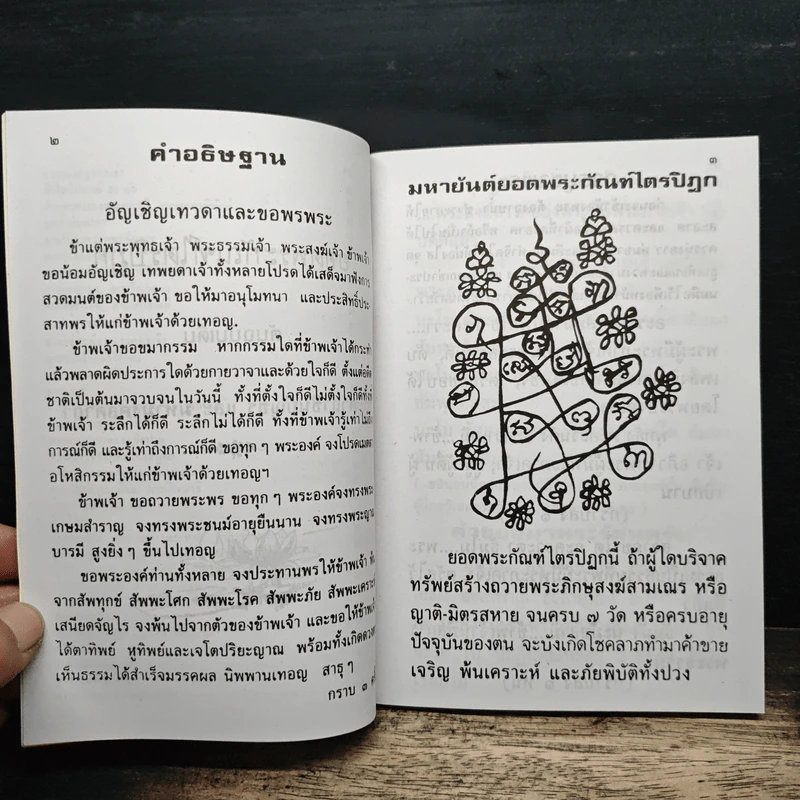 ๒
คำอธิษฐาน
อัญเชิญเทวดาและขอพรพระ
ข้าแต่พระพุทธเจ้า พระธรรมเจ้า พระสงฆ์เจ้า ข้าพเจ้า
ขอน้อมอัญเชิญ เทพยดาเจ้าทั้งหลายโปรดได้เสด็จมาฟังการ
สวดมนต์ของข้าพเจ้า ขอให้มาอนุโมทนา และประสิทธิ์ประ
สาทพรให้แก่ข้าพเจ้าด้วยเทอญ.
ข้าพเจ้าขอขมากรรม หากกรรมใดที่ข้าพเจ้าได้กระทำ
แล้วพลาดผิดประการใดด้วยกายวาจาและด้วยใจก็ดี ตั้งแต่อดีต
ชาติเป็นต้นมาจวบจนในวันนี้ ทั้งที่ตั้งใจก็ดีไม่ตั้งใจก็ดีทั้งที่
ข้าพเจ้า ระลึกได้ก็ดี ระลึกไม่ได้ก็ดี ทั้งที่ข้าพเจ้ารู้เท่าไม่ถึง
การณ์ก็ดี และรู้เท่าถึงการณ์ก็ดี ขอทุก ๆ พระองค์ จงโปรดเมตตา
อโหสิกรรมให้แก่ข้าพเจ้าด้วยเทอญฯ
ข้าพเจ้า ขอถวายพระพร ขอทุก ๆ พระองค์จงทรงพระ
เกษมสำราญ จงทรงพระชนม์อายุยืนนาน จงทรงพระญาณ
บารมี สูงยิ่ง ๆ ขึ้นไปเทอญ
ขอพระองค์ท่านทั้งหลาย จงประทานพรให้ข้าพเจ้า พ้น
จากสัพทุกข์ สัพพะโศก สัพพะโรค สัพพะภัย สัพพะเคราะห์
เสนียดจัญไร จงพ้นไปจากตัวของข้าพเจ้า และขอให้ข้าพเจ้า
ได้ตาทิพย์ หูทิพย์และเจโตปริยะญาณ พร้อมทั้งเกิดดวงตา
เห็นธรรมได้สำเร็จมรรคผล นิพพานเทอญ สาธุ ๆ
กราบ ๓
๓
มหายันต์ยอดพระกัณฑ์ไตรปิฎก
ยอดพระกัณฑ์ไตรปิฎกนี้ ถ้าผู้ใดบริจาค
ทรัพย์สร้างถวายพระภิกษุสงฆ์สามเณร หรือ
ญาติ-มิตรสหาย จนครบ ๗ วัด หรือครบอายุ
ปัจจุบันของตน จะบังเกิดโชคลาภทำมาค้าขาย
เจริญ พ้นเคราะห์ และภัยพิบัติทั้งปวง